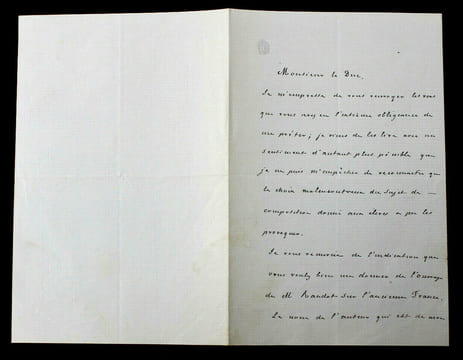 Monsieur le Duc,
Je m'empresse de vous renvoyer les vers
que vous avez eu l'extrême obligeance de
me prêter; je viens de les lire avec un
sentiment d'autant plus pénible que
je ne puis m'empêcher de reconnaître que
le choix malencontreux du sujet de —
composition donné aux élèves a pu les
provoquer.
Je vous remercie de l'indication que
vous voulez bien me donner de l'ouvrage
de M Raudot sur l'ancienne France.
Le nom de l'auteur qui est de mon